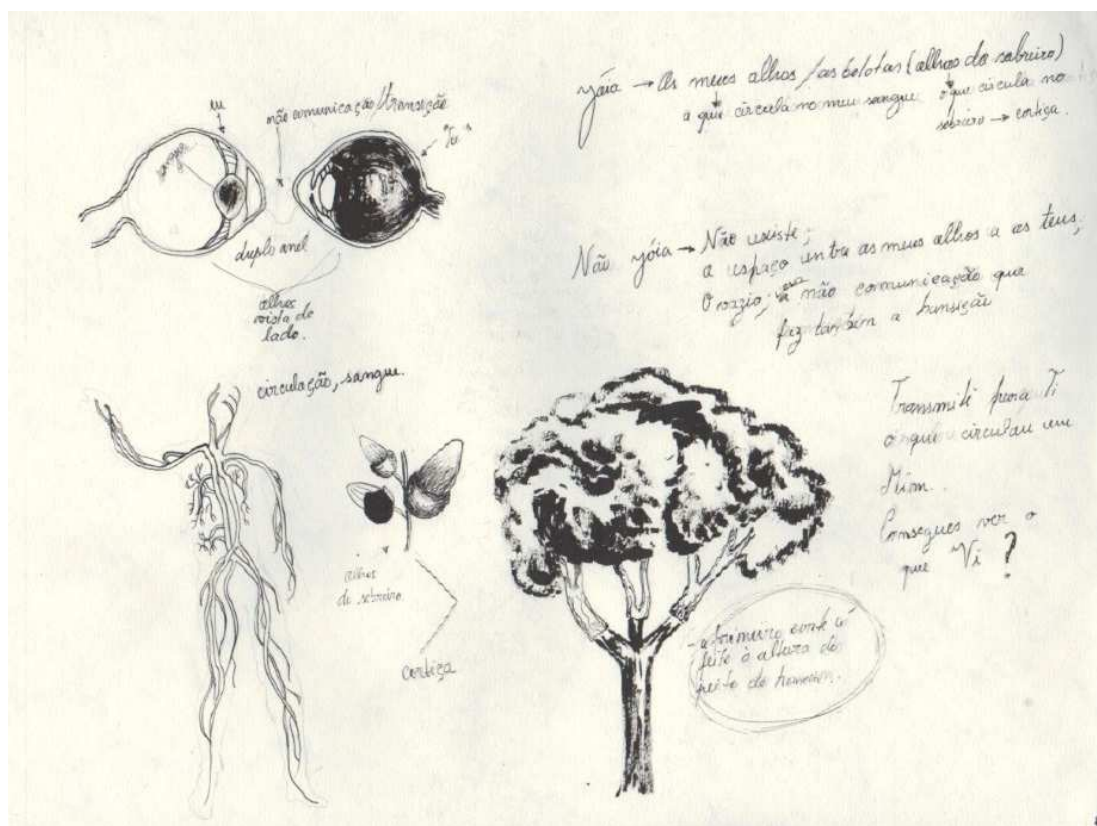 eu
não comunicação/transição
"Tu"
sangue
duplo anel
olhos
vista de
lado.
jóia → Os meus olhos / as bolotas (olhos do sobreiro)
o que circula no meu sangue
o que circula no
sobreiro → cortiça.
Não jóia → Não existe;
o espaço entre os meus olhos e os teus;
O vazio; a não comunicação que
faz também a transição
circulação, sangue.
olhos
do sobreiro.
cortiça
Transmiti para Ti
o que circulou em
Mim.
Consegues ver o
que Vi ?
- o primeiro corte é
feito à altura do
peito do homem.